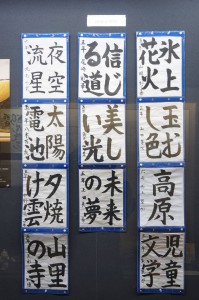 氷上
花火
玉む
し色
高原
児童
文学
信じ
る道
美し
い光
未来
の夢
夜空
流星
太陽
電池
夕焼
け雲
山里
の寺